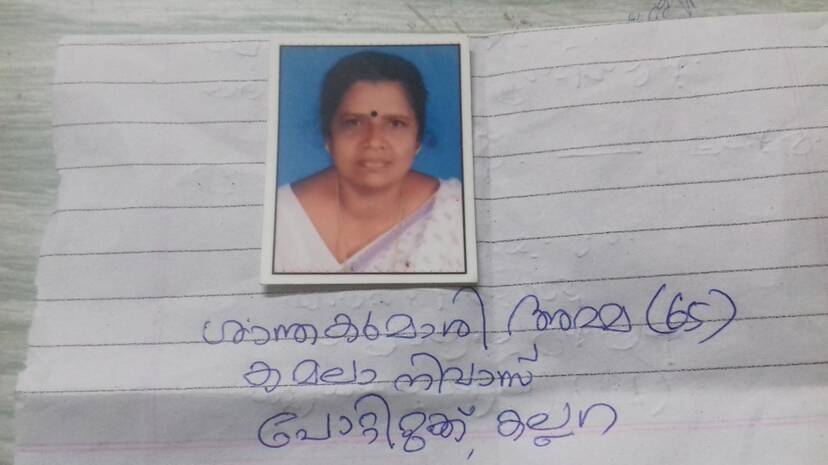 ശാന്തകുമാരി അമ്മ (65)
കമലാ നിവാസ്
പോറ്റിമുക്ക്, കല്ലറ